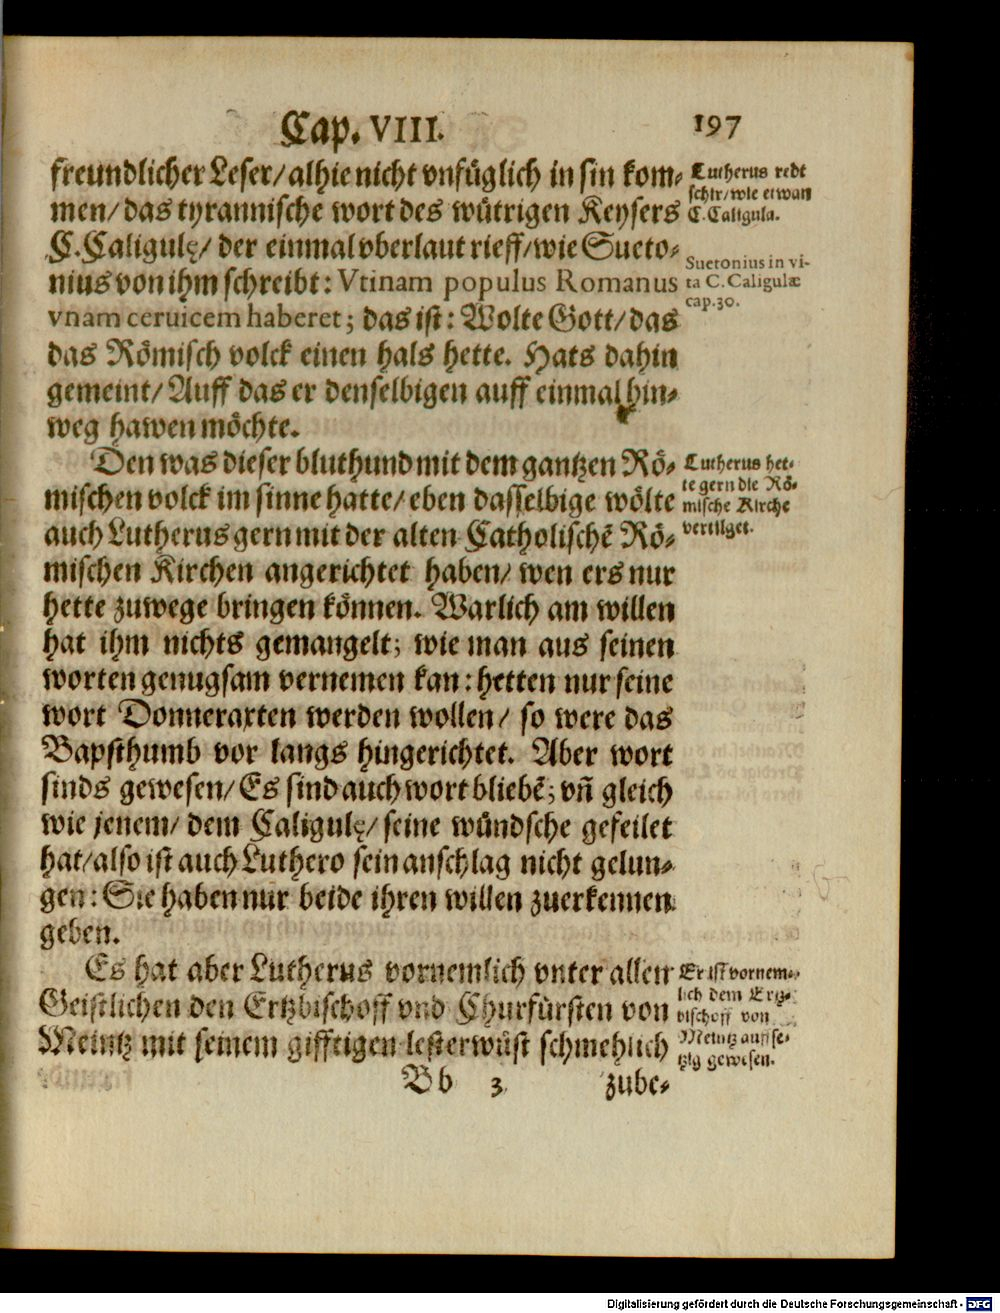 Cap. VIII. 197
freundlicher Leser/ alhie nicht vnfüglich in sin kom-
men/ das tyrannische wort des wütrigen Keysers
C. Caligulę/ der einmal vberlaut rieff/ wie Sueto-
nius von ihm schreibt: Vtinam populus Romanus
vnam ceruicem haberet; das ist: Wolte Gott/ das
das Römisch volck einen hals hette. Hats dahin
gemeint/ Auff das er denselbigen auff einmal hin-
weg hawen möchte.
Den was dieser bluthund mit dem gantzen Rö-
mischen volck im sinne hatte/ eben dasselbige wölte
auch Lutherus gern mit der alten Catholischē Rö-
mischen Kirchen angerichtet haben/ wen ers nur
hette zuwege bringen können. Warlich am willen
hat ihm nichts gemangelt; wie man aus seinen
worten genugsam vernemen kan: hetten nur seine
wort Donneraxten werden wollen/ so were das
Bapsthumb vor langs hingerichtet. Aber wort
sinds gewesen/ Es sind auch wort bliebē; vñ gleich
wie jenem/ dem Caligulę/ seine wündsche gefeilet
hat/ also ist auch Luthero sein anschlag nicht gelun-
gen: Sie haben nur beide ihren willen zuerkennen
geben.
Es hat aber Lutherus vornemlich vnter allen
Geistlichen den Ertzbischoff vnd Churfürsten von
Meintz mit seinem gifftigen lesterwüst schmehlich
Bb 3 zube-
Lutherus redt
schir/ wie etwan
C. Caligula.
Suetonius in vi-
ta C. Caligulæ
cap. 30.
Lutherus het-
te gern die Rö-
mische Kirche
vertilget.
Er ist vornem-
lich dem Ertz-
bischoff von
Meintz auffse-
tzig gewesen.
Digitalisierung gefördert durch die Deutsche Forschungsgemeinschaft - DFG